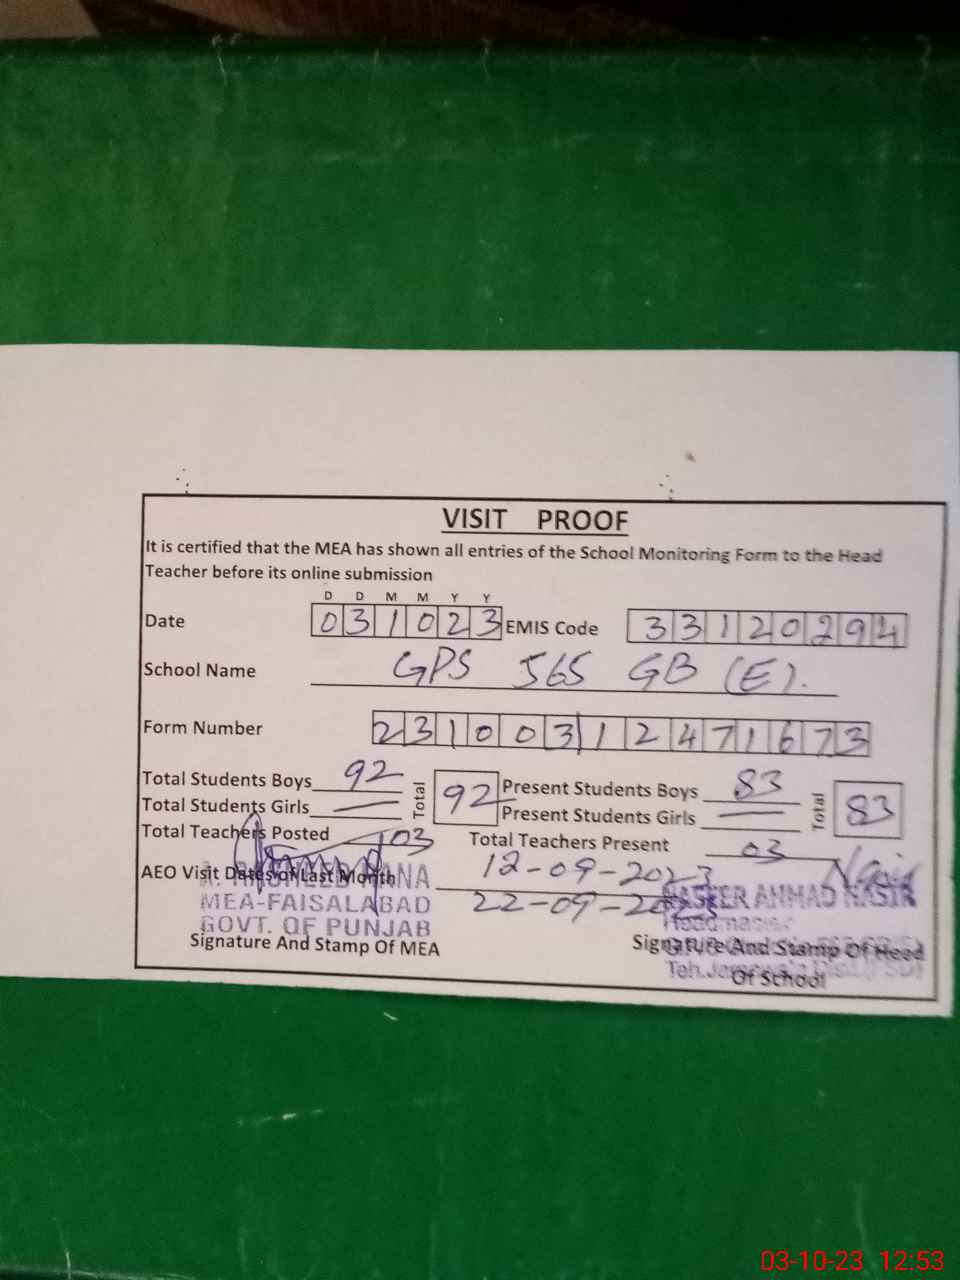 VISIT PROOF
It is certified that the MEA has shown all entries of the School Monitoring Form to the Head
Teacher before its online submission
D D M M Y Y
Date 031023 EMIS Code 33120294
School Name GPS 565 GB (E).
Form Number 23100312471673
Total Students Boys 92 Total 92 Present Students Boys 83 Total 83
Total Students Girls — Present Students Girls —
Total Teachers Posted 03 Total Teachers Present 03
AEO Visit Dates of Last Month 12-09-2023
22-09-2023
RANA
MEA-FAISALABAD
GOVT. OF PUNJAB
Signature And Stamp Of MEA
NASEER AHMAD NASIR
Headmaster
Signature And Stamp Of Head
Of School
03-10-23 12:53